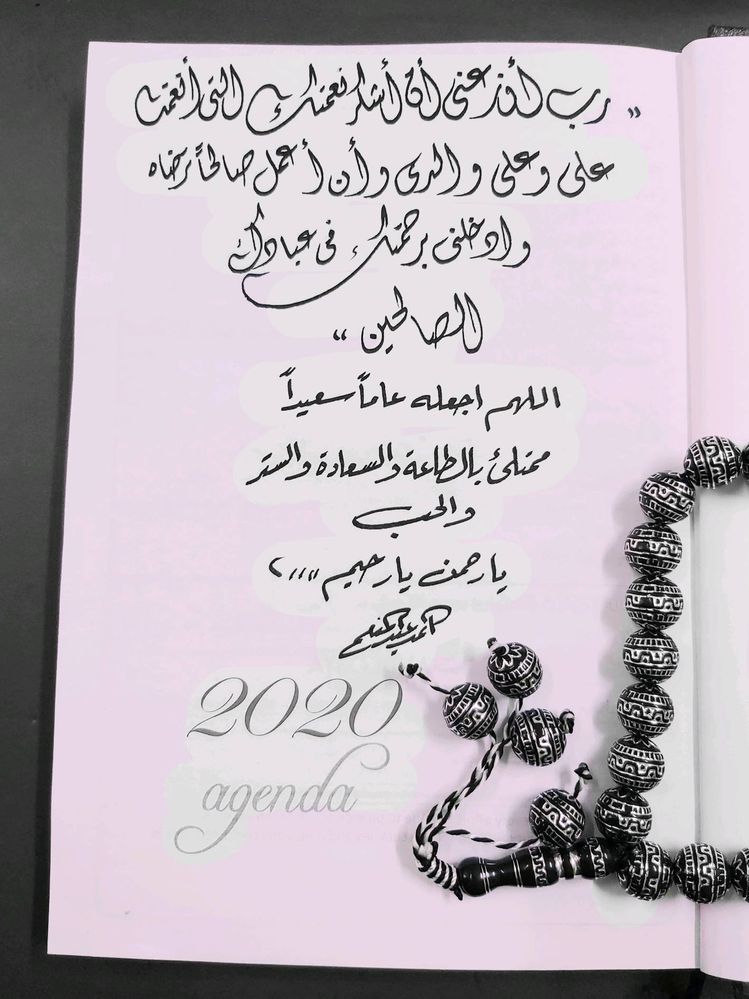 " رب أوزعني أن أشكر نعمتك التي أنعمت
علي وعلى والدي وأن أعمل صالحاً ترضاه
وادخلني برحمتك في عبادك
الصالحين "
اللهم اجعله عاماً سعيداً
ممتلئ بالطاعة والسعادة والستر
والحب
يا رحمن يا رحيم ،،،،
أحمد عبد المنعم
2020
agenda